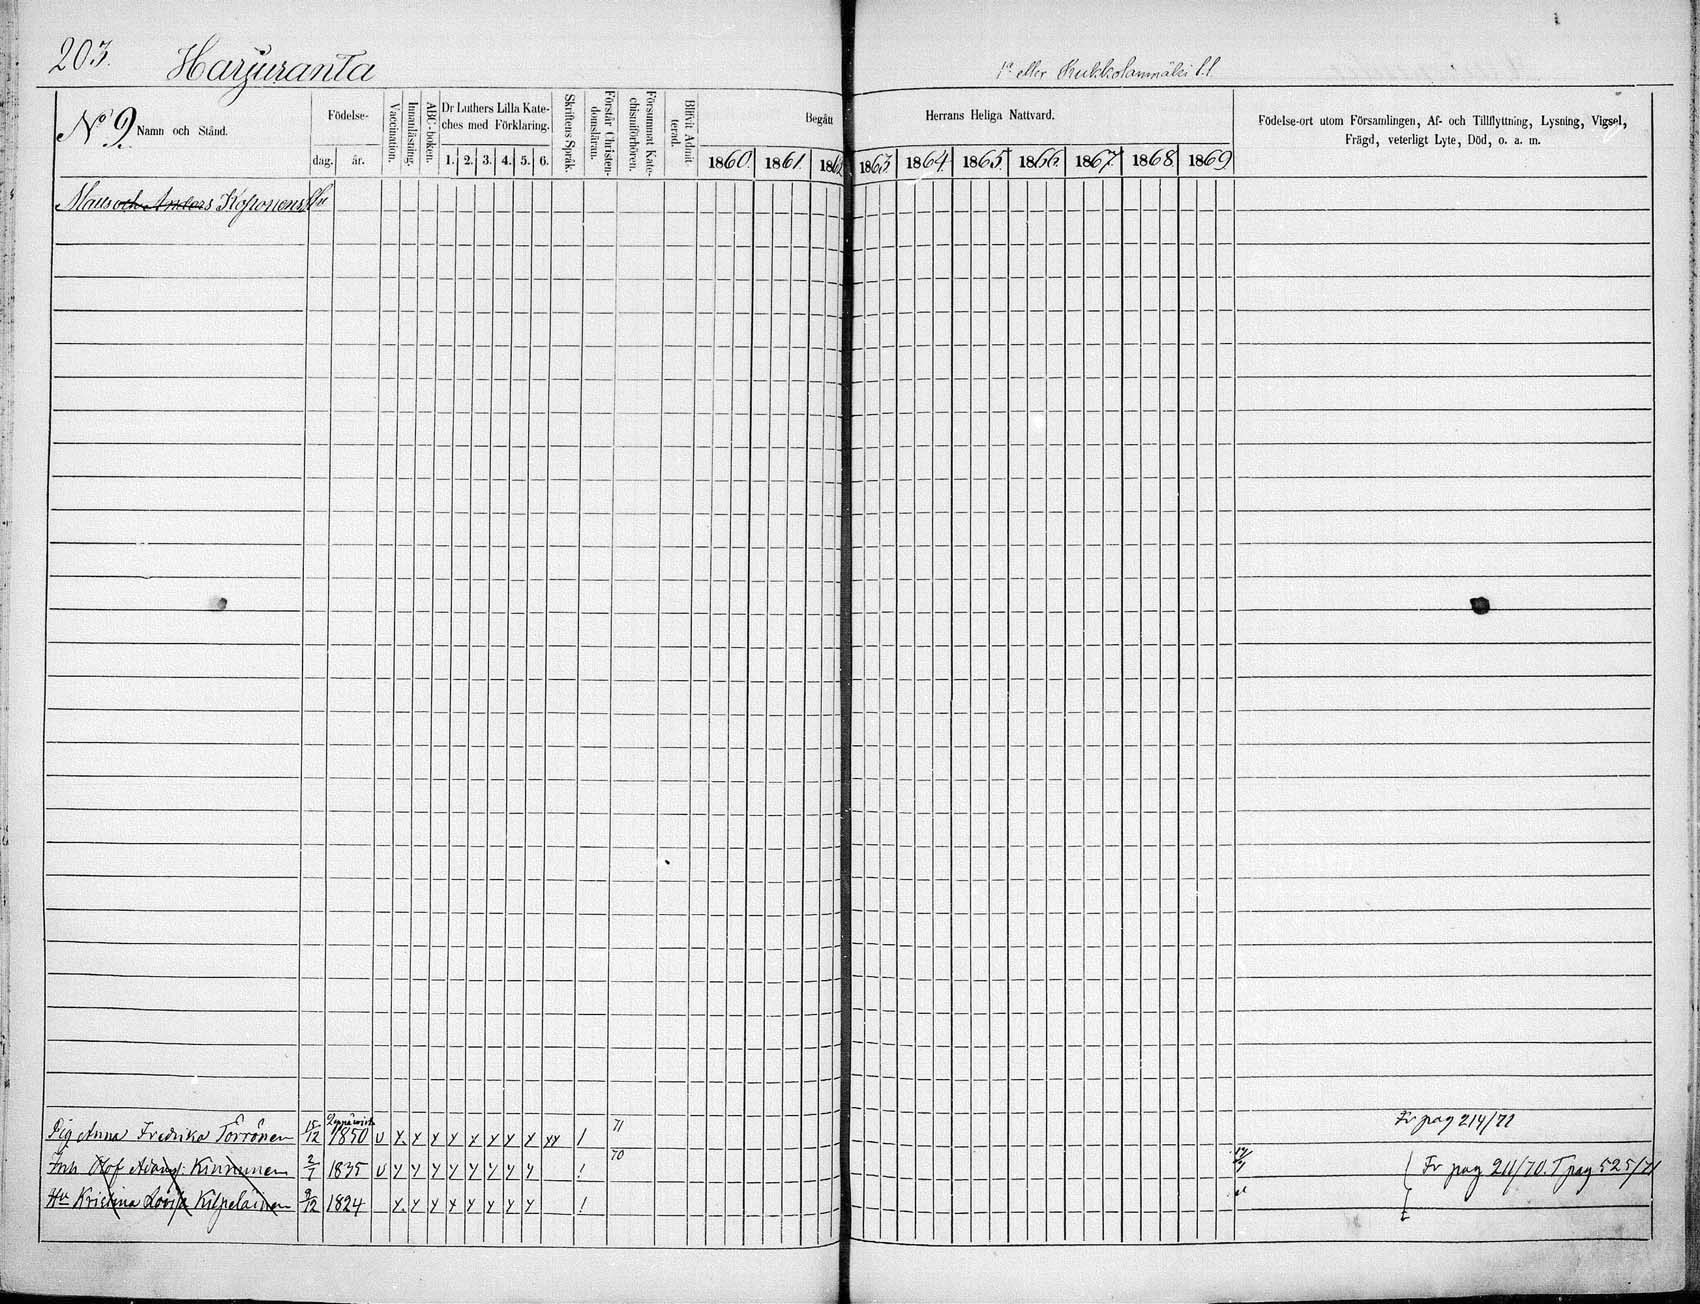 203. Harjuranta
1a eller Kukkolanmäki
No 9. Namn och Stånd.
Födelse-
dag. år.
Vaccination.
Innanläsning.
ABC-boken.
Dr Luthers Lilla Kate-
ches med Förklaring.
1. 2. 3. 4. 5. 6.
Skriftens Språk.
Förstår Christen-
domsläran.
Försummat Kate-
chismiförhören.
Blifvit Admit-
terad.
Begått Herrans Heliga Nattvard.
1860. 1861. 1862 1863. 1864. 1865. 1866. 1867. 1868. 1869.
Födelse-ort utom Församlingen, Af- och Tillflyttning, Lysning, Vigsel,
Frägd, veterligt Lyte, Död, o. a. m.
Matts och Anders Koponens
Pig Anna Fredrika Törrönen 15/12 1850 71 Fr pag 214/71
Inh Olof Kinnunen 2/7 1835 70 Fr pag 211/70. T pag 525/71
Hu Kristina Lovisa Kilpeläinen 9/12 1824